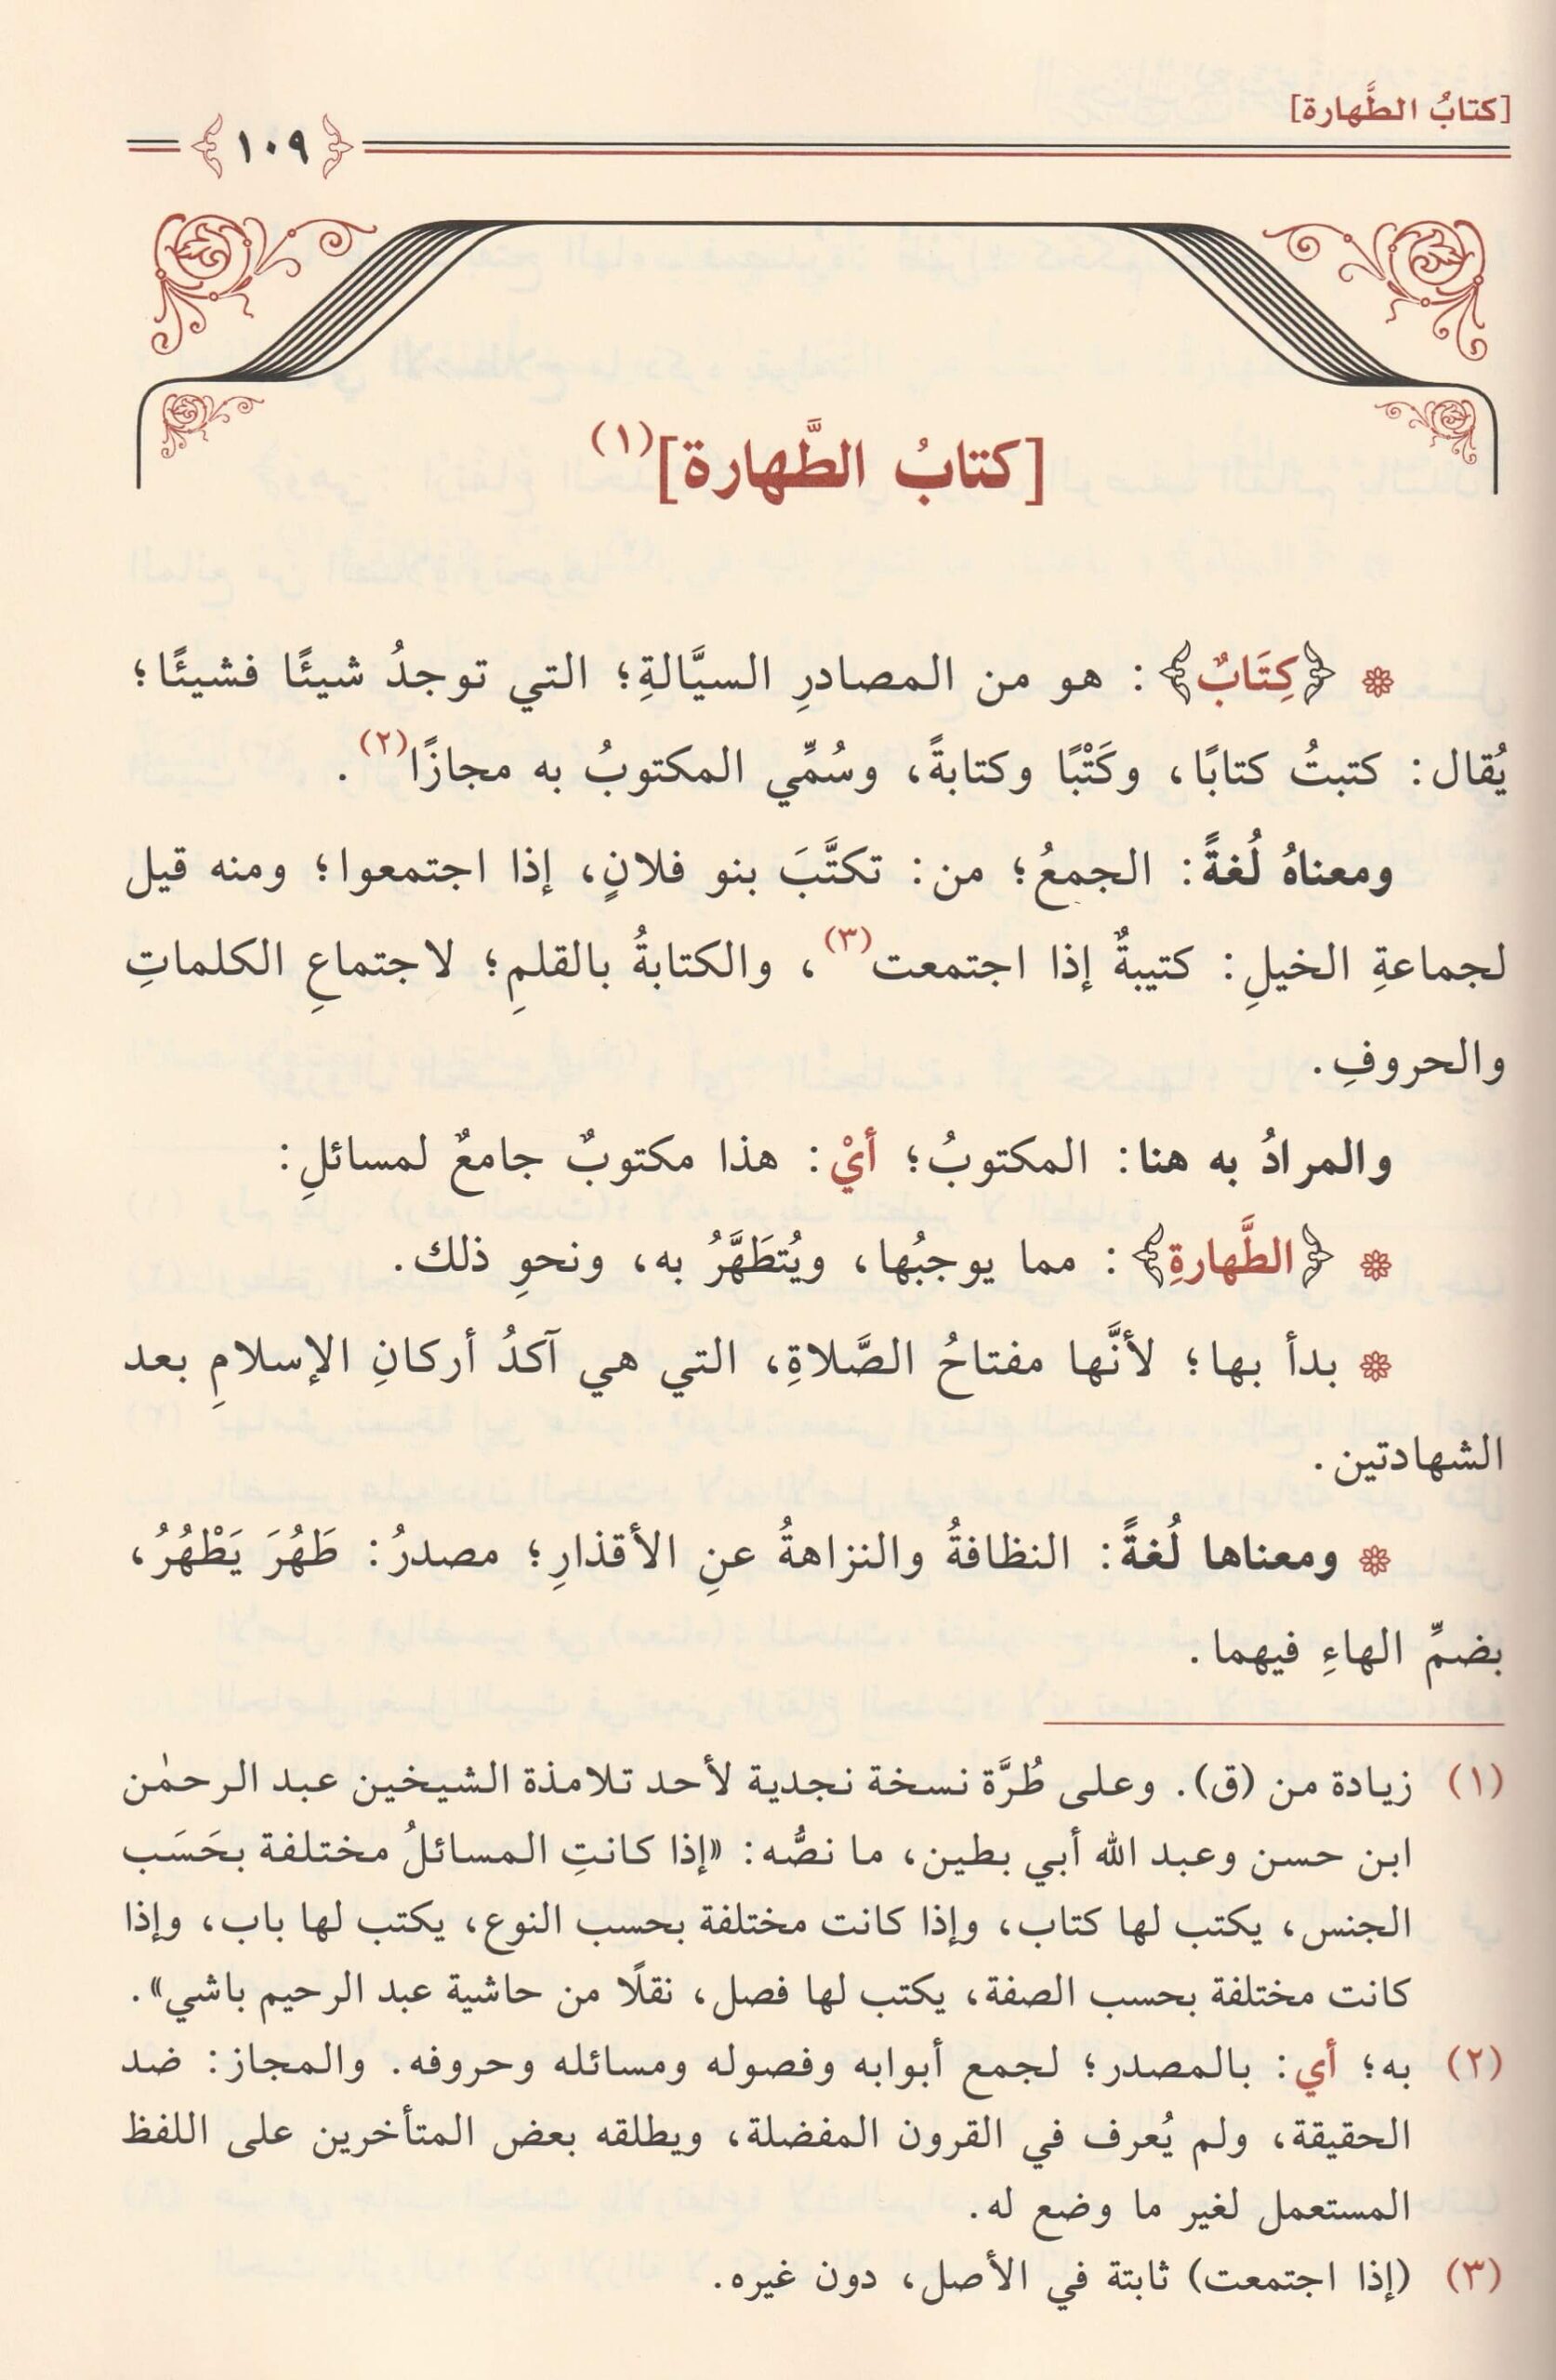 [كتابُ الطَّهارة]
١٠٩
[كتابُ الطَّهارة](١)
﴿كِتَابٌ﴾: هو من المصادرِ السيَّالةِ؛ التي توجدُ شيئًا فشيئًا؛
يُقال: كتبتُ كتابًا، وكَتْبًا وكتابةً، وسُمِّي المكتوبُ به مجازًا(٢).
ومعناهُ لُغةً: الجمعُ؛ من: تكتَّبَ بنو فلانٍ، إذا اجتمعوا؛ ومنه قيل
لجماعةِ الخيلِ: كتيبةٌ إذا اجتمعت(٣)، والكتابةُ بالقلمِ؛ لاجتماعِ الكلماتِ
والحروفِ.
والمرادُ به هنا: المكتوبُ؛ أيْ: هذا مكتوبٌ جامعٌ لمسائلِ:
﴿الطَّهارةِ﴾: مما يوجبُها، ويُتطَهَّرُ به، ونحوِ ذلك.
بدأ بها؛ لأنَّها مفتاحُ الصَّلاةِ، التي هي آكدُ أركانِ الإسلامِ بعد
الشهادتين.
ومعناها لُغةً: النظافةُ والنزاهةُ عنِ الأقذارِ؛ مصدرُ: طَهُرَ يَطْهُرُ،
بضمِّ الهاءِ فيهما.
(١) زيادة من (ق). وعلى طُرَّة نسخة نجدية لأحد تلامذة الشيخين عبد الرحمٰن
ابن حسن وعبد الله أبي بطين، ما نصُّه: «إذا كانتِ المسائلُ مختلفة بحَسَب
الجنس، يكتب لها كتاب، وإذا كانت مختلفة بحسب النوع، يكتب لها باب، وإذا
كانت مختلفة بحسب الصفة، يكتب لها فصل، نقلًا من حاشية عبد الرحيم باشي».
(٢) به؛ أي: بالمصدر؛ لجمع أبوابه وفصوله ومسائله وحروفه. والمجاز: ضد
الحقيقة، ولم يُعرف في القرون المفضلة، ويطلقه بعض المتأخرين على اللفظ
المستعمل لغير ما وضع له.
(٣) (إذا اجتمعت) ثابتة في الأصل، دون غيره.